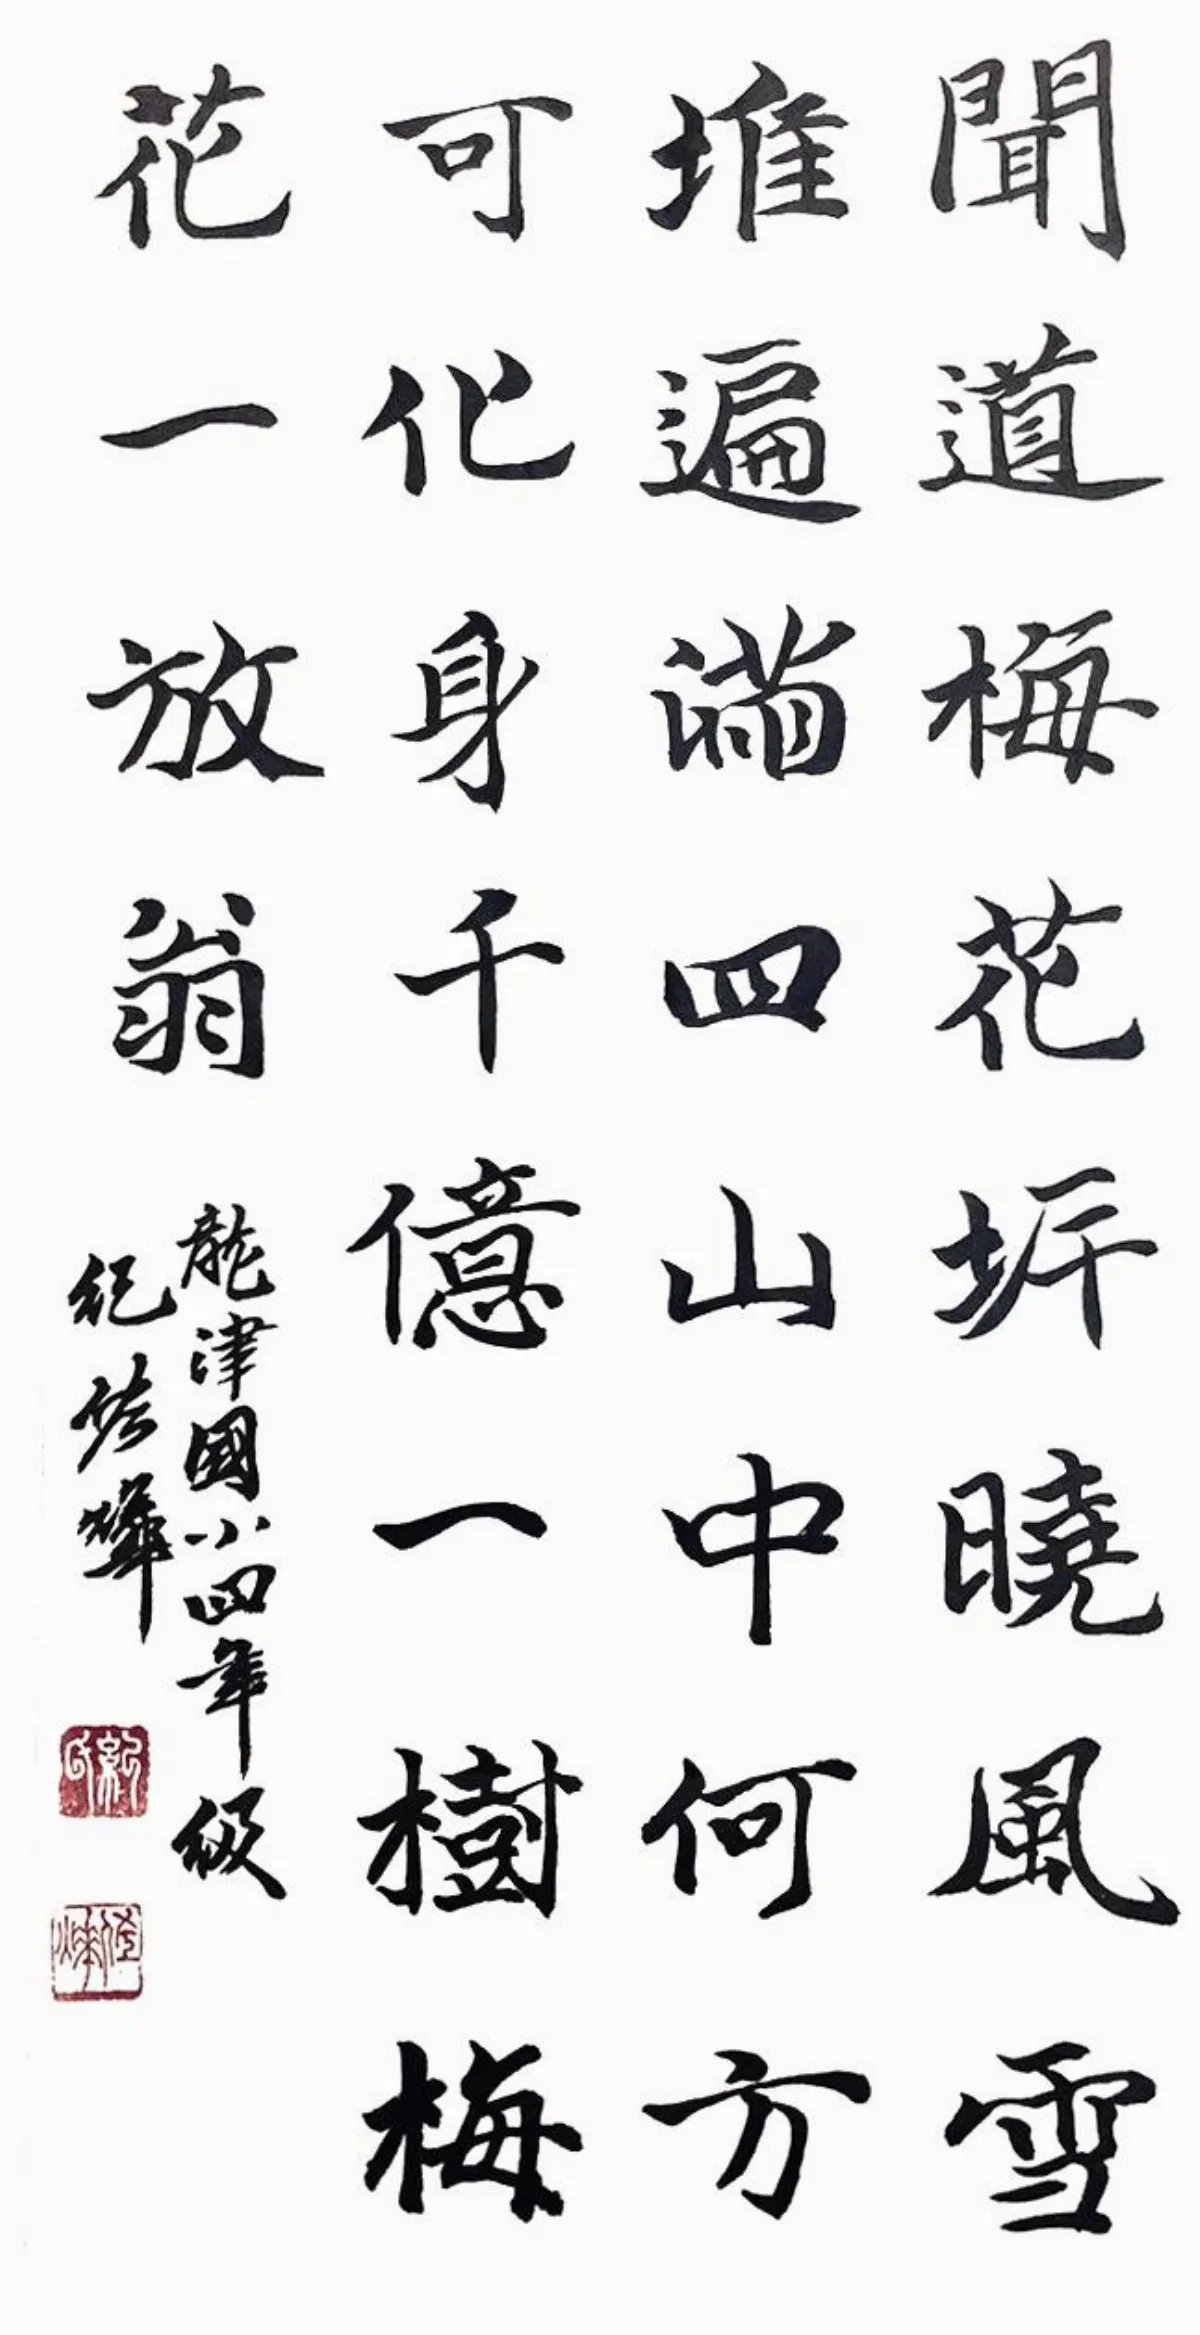 聞道梅花坼曉風雪
堆遍滿四山中何方
可化身千億一樹梅
花一放翁
龍津國小四年級
紀燁
紀氏